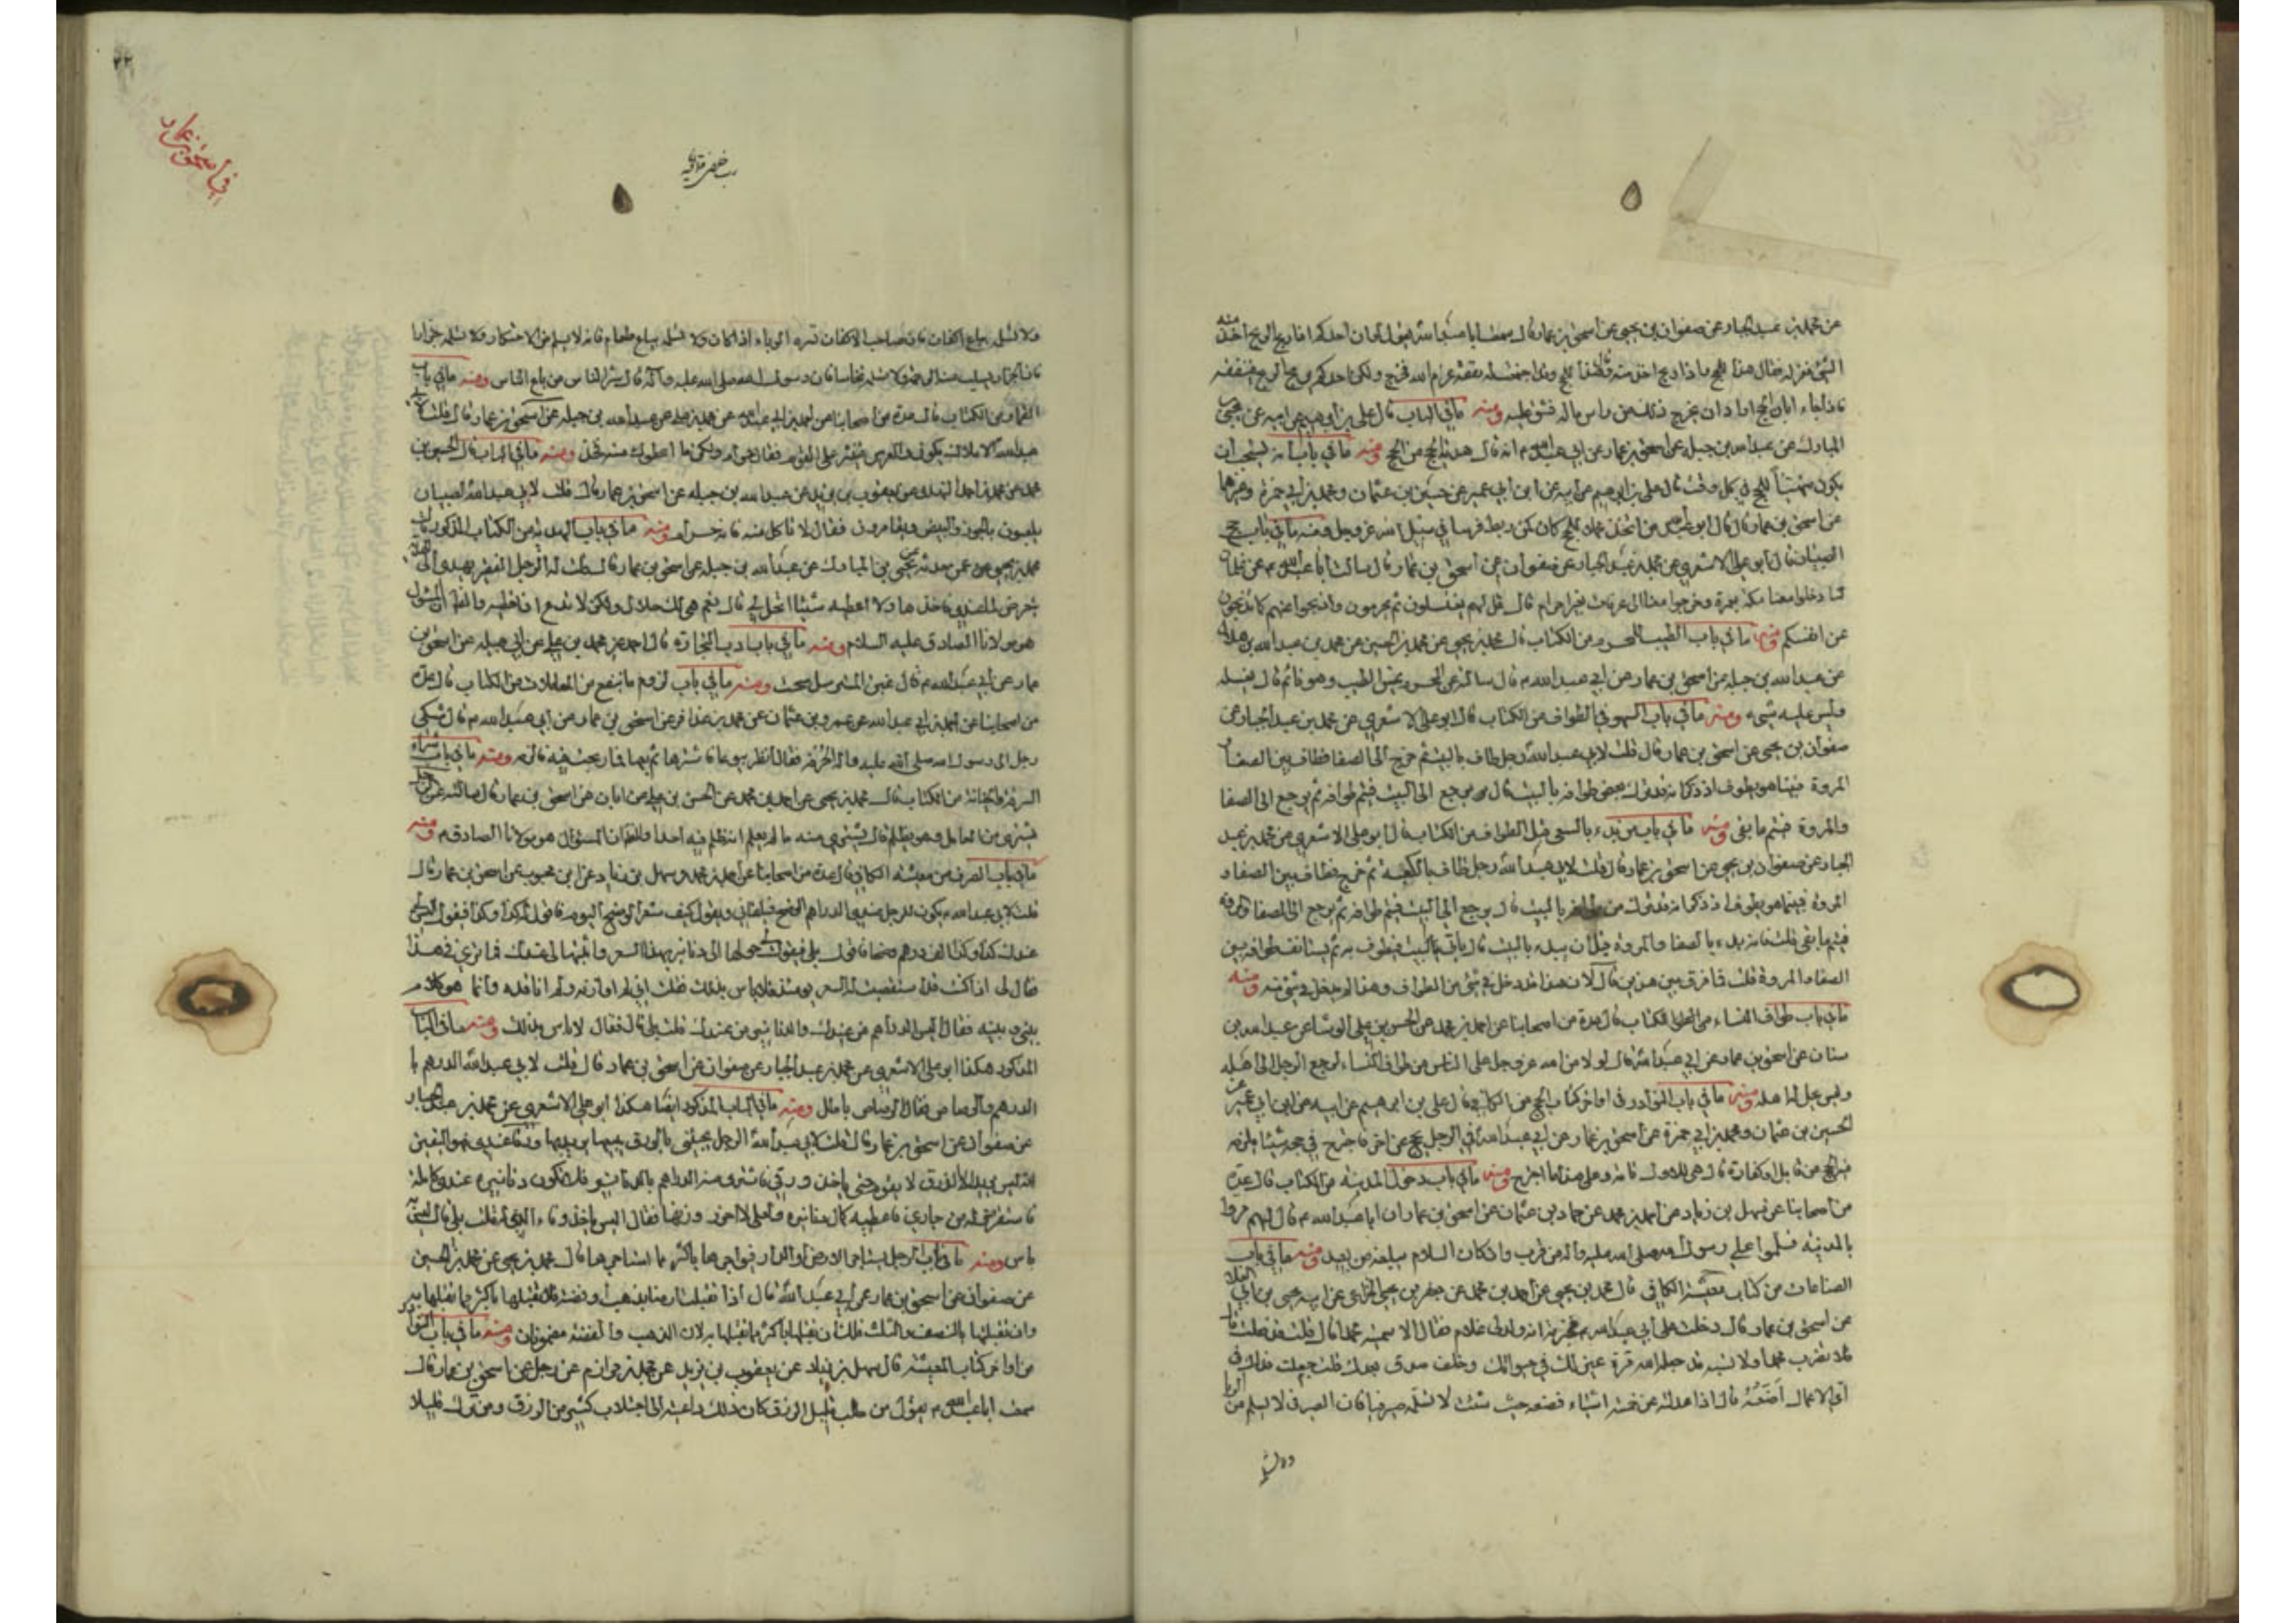 عن محمد بن عبد الجبار عن صفوان بن يحيى عن اسحق بن عمار قال سمعت ابا عبد الله يقول لو ان احدكم اذا ربح الربح اخذ منه
الشئ فعزله فقال هذا للحج واذا ربح اخذ منه وقال هذا للحج جاء ابان الحج وقد اجتمعت له نفقة عزم الله فخرج ولكن احدكم يربح الربح فينفقه
فاذا جاء ابان الحج اراد ان يخرج ذلك من راس ماله فشق عليه ومنه ما في الباب قال علي بن ابرهيم عن ابيه عن يحيى بن
المبارك عن عبد الله بن جبله عن اسحق بن عمار عن ابي عبد الله م انه قال هدية الحج من الحج ومنه ما في باب انه يستحب ان
يكون متهيئا للحج في كل وقت قال علي بن ابرهيم عن ابيه عن ابن ابي عمير عن حسين بن عثمان ومحمد بن ابي حمزة وغيرهما
عن اسحق بن عمار قال قال ابو عبد الله من اتخذ محملا للحج كان كمن ربط فرسا في سبيل الله عز وجل ومنه ما في باب حج
الصبيان قال ابو علي الاشعري عن محمد بن عبد الجبار عن صفوان عن اسحق بن عمار قال سالت ابا عبد الله م عن غلمان
لنا دخلوا معنا مكة بعمرة وخرجوا معنا الى عرفات بغير احرام قال قل لهم يغتسلون ثم يحرمون واذبحوا عنهم كما تذبحون
عن انفسكم ومنه ما في باب الطيب للمحرم من الكتاب قال محمد بن يحيى عن محمد بن الحسين عن محمد بن عبد الله بن هلال
عن عبد الله بن جبله عن اسحق بن عمار عن ابي عبد الله م قال سالته عن المحرم يمس الطيب وهو نائم قال يغسله
وليس عليه شئ ومنه ما في باب السهو في الطواف من الكتاب قال ابو علي الاشعري عن محمد بن عبد الجبار عن
صفوان بن يحيى عن اسحق بن عمار قال قلت لابي عبد الله رجل طاف بالبيت ثم خرج الى الصفا فطاف بين الصفا و
المروة فبينما هو يطوف اذ ذكر انه قد ترك بعض طوافه بالبيت قال يرجع الى البيت فيتم طوافه ثم يرجع الى الصفا
والمروة فيتم ما بقى ومنه ما في باب من بدء بالسعي قبل الطواف من الكتاب قال ابو علي الاشعري عن محمد بن عبد
الجبار عن صفوان بن يحيى عن اسحق بن عمار قال قلت لابي عبد الله رجل طاف بالكعبة ثم خرج فطاف بين الصفا و
المروة فبينما هو يطوف اذ ذكر انه قد ترك من طوافه بالبيت قال يرجع الى البيت فيتم طوافه ثم يرجع الى الصفا والمروة
فيتم ما بقى قلت فانه بدء بالصفا والمروة قبل ان يبدء بالبيت قال ياتي البيت فيطوف به ثم يستانف طوافه بين
الصفا والمروة قلت فما فرق بين هذين قال لان هذا قد دخل في شئ من الطواف وهذا لم يدخل في شئ منه ومنه
ما في باب طواف النساء من الكتاب قال عدة من اصحابنا عن احمد بن محمد عن الحسن بن علي الوشا عن عبد الله بن
سنان عن اسحق بن عمار عن ابي عبد الله قال لولا ما من الله عز وجل على الناس من طواف النساء لرجع الرجل الى اهله
وليس يحل له اهله ومنه ما في باب النوادر في اواخر كتاب الحج من الكافي قال علي بن ابرهيم عن ابيه عن ابن ابي عمير عن
الحسين بن عثمان ومحمد بن ابي حمزة عن اسحق بن عمار عن ابي عبد الله في الرجل يحج عن اخر فاجترح في حجه شيئا يلزمه
فيه الحج من قابل او كفارة قال هي للاول تامة وعلى هذا ما اجترح ومنه ما في باب دخول المدينة من الكتاب قال عدة
من اصحابنا عن سهل بن زياد عن احمد بن محمد عن حماد بن عثمان عن اسحق بن عمار ان ابا عبد الله م قال لهم مروا
بالمدينة فسلموا على رسول الله صلى الله عليه واله من قريب وان كان السلام يبلغه من بعيد ومنه ما في باب
الصناعات من كتاب معيشة الكافي قال محمد بن يحيى عن احمد بن محمد عن جعفر بن يحيى الخزاعي عن ابيه يحيى بن ابي العلا
عن اسحق بن عمار قال دخلت على ابي عبد الله م فخبرته انه ولد لي غلام فقال الا سميته محمدا قال قلت قد فعلت قال
فلا تضرب محمدا ولا تسبه قد جعله الله قرة عين لك في حيوتك وخلف صدق بعدك قلت جعلت فداك في
اي الاعمال اضعه قال اذا عدلته عن خمسة اشياء فضعه حيث شئت لا تسلمه صيرفيا فان الصيرفي لا يسلم من الربا
ولا تسلمه
٢٢
في اسحق بن عمار
فلا تسلمه بياع اكفان فان صاحب الاكفان تسره الوباء اذا كان ولا تسلمه بياع طعام فانه لا يسلم من الاحتكار ولا تسلمه جزارا
فان الجزار تسلب منه الرحمة ولا تسلمه نخاسا فان رسول الله صلى الله عليه واله قال شر الناس من باع الناس ومنه ما في باب
القمار من الكتاب قال عدة من اصحابنا عن احمد بن ابي عبد الله عن محمد بن علي عن عبد الله بن جبله عن اسحق بن عمار قال قلت لابي
عبد الله الاملاك يكون والعرس فينثر على القوم فقال حرام ولكن ما اعطوك منه فخذ ومنه ما في الباب قال الحسين بن
محمد عن محمد بن احمد النهدي عن يعقوب بن يزيد عن عبد الله بن جبله عن اسحق بن عمار قال قلت لابي عبد الله الصبيان
يلعبون بالجوز والبيض ويقامرون فقال لا تاكل منه فانه حرام ومنه ما في باب الهدية من الكتاب المذكور قال
محمد بن يحيى عمن حدثه عن يحيى بن المبارك عن عبد الله بن جبله عن اسحق بن عمار قال قلت له الرجل الفقير يهدي الى الهدية
يتعرض لما عندي فاخذها ولا اعطيه شيئا ايحل لي قال نعم هي لك حلال ولكن لا تدع ان تعطيه والظ ان المسئول
هو مولانا الصادق عليه السلام ومنه ما في باب اداب التجارة قال احمد عن محمد بن علي عن ابي جميله عن اسحق بن
عمار عن ابي عبد الله م قال غبن المسترسل سحت ومنه ما في باب لزوم ما ينفع من المعاملات من الكتاب قال عدة
من اصحابنا عن احمد بن ابي عبد الله عن عمرو بن عثمان عن محمد بن عذافر عن اسحق بن عمار عن ابي عبد الله م قال شكى
رجل الى رسول الله صلى الله عليه واله الحرفة فقال انظر بيوعا فاشترها ثم بعها فما ربحت فيه فالزمه ومنه ما في باب شراء
السرقة والخيانة من الكتاب قال محمد بن يحيى عن احمد بن محمد عن الحسن بن علي عن ابان عن اسحق بن عمار قال سالته عن الرجل
يشتري من العامل وهو يظلم قال يشتري منه ما لم يعلم انه ظلم فيه احدا والظ ان المسئول هو مولانا الصادق م ومنه
ما في باب الصرف من معيشة الكافي قال عدة من اصحابنا عن احمد بن محمد وسهل بن زياد عن ابن محبوب عن اسحق بن عمار قال
قلت لابي عبد الله م يكون للرجل عندي الدراهم الوضح فيلقاني ويقول كيف سعر الوضح اليوم فاقول له كذا وكذا فيقول اليس لي
عندك كذا وكذا الف درهم وضحا فاقول بلى فيقول حولها الى دنانير بهذا السعر واثبتها لي عندك فما ترى في هذا
فقال لي اذا كنت قد استقصيت له السعر يومئذ فلا باس بذلك فقلت اني لم اوازنه ولم اناقده وانما هو كلام
بيني وبينه فقال اليس الدراهم من عندك والدنانير من عندك قلت بلى قال فقال لا باس بذلك ومنه ما في الباب
المذكور هكذا ابو علي الاشعري عن محمد بن عبد الجبار عن صفوان عن اسحق بن عمار قال قلت لابي عبد الله الدراهم با
الدراهم والرصاص فقال الرصاص باطل ومنه ما في الباب المذكور ايضا هكذا ابو علي الاشعري عن محمد بن عبد الجبار
عن صفوان عن اسحق بن عمار قال قلت لابي عبد الله الرجل يجيئني بالورق يبيعها يريد بها ورقا عندي فهو اليقين
انه ليس يريد الا الورق لا يقوم حتى ياخذ ورقي فاشتري منه الدراهم بالدنانير فلا تكون دنانيره عندي كاملة
فاستقرض له من جاري فاعطيه كمال دنانيره ولعلي لا احرز وزنها فقال اليس ياخذ وفاء الذي له قلت بلى قال ليس به
باس ومنه ما في باب الرجل يستاجر الارض او الدار فيواجرها باكثر مما استاجرها قال محمد بن يحيى عن محمد بن الحسين
عن صفوان عن اسحق بن عمار عن ابي عبد الله قال اذا تقبلت ارضا بذهب او فضة فلا تقبلها باكثر مما تقبلتها به
وان تقبلتها بالنصف والثلث فلك ان تقبلها باكثر مما تقبلتها به لان الذهب والفضة مضمونان ومنه ما في باب النوادر
من اواخر كتاب المعيشة قال سهل بن زياد عن يعقوب بن يزيد عن محمد بن مرازم عن رجل عن اسحق بن عمار قال
سمعت ابا عبد الله م يقول من طلب قليل الرزق كان ذلك داعيه الى اجتلاب كثير من الرزق ومن ترك قليلا